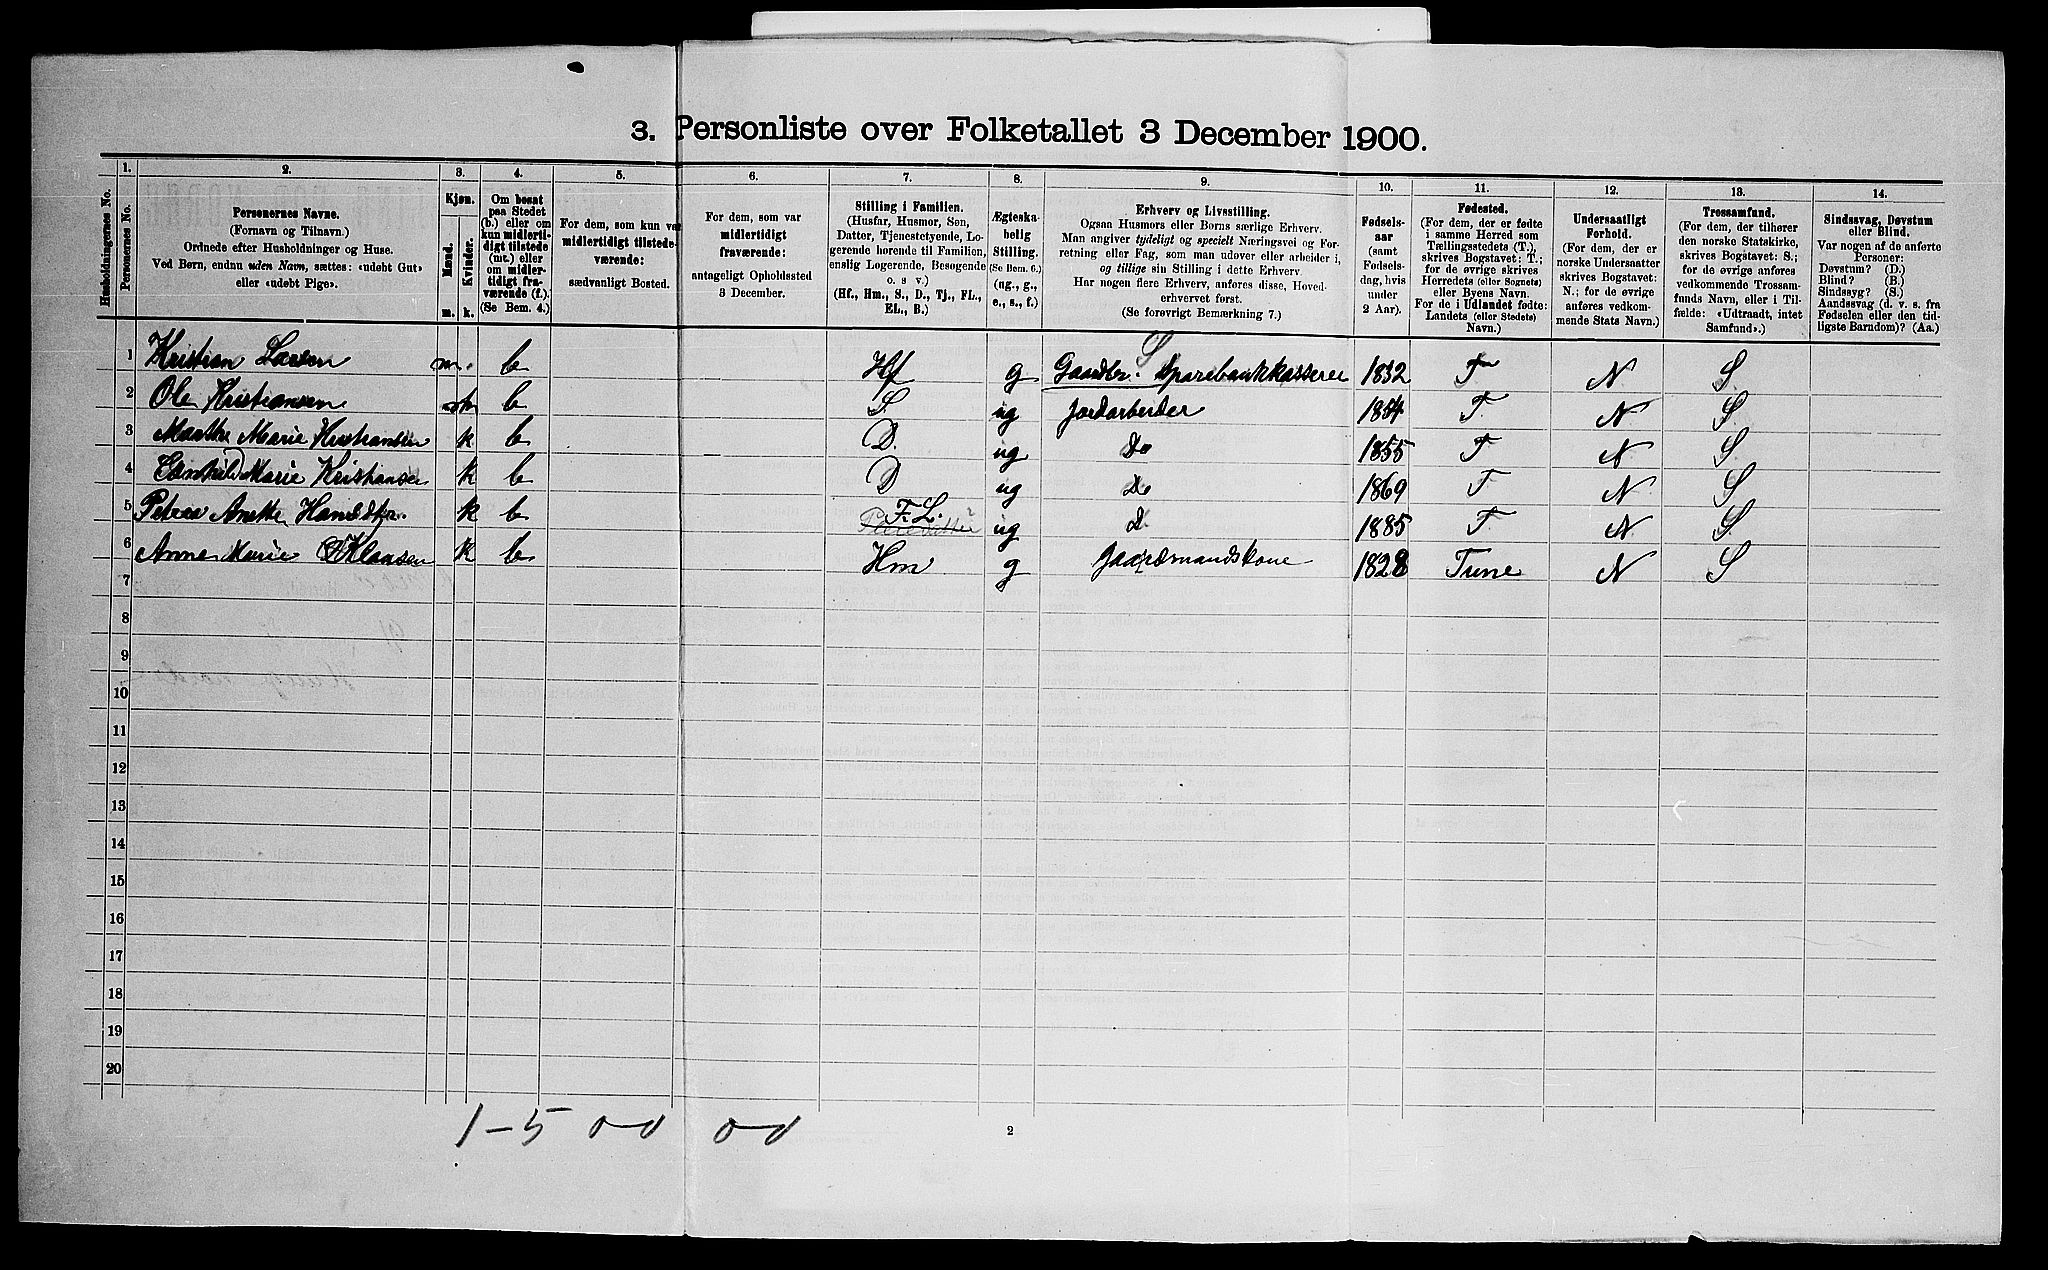 3. Personliste over Folketallet 3 December 1900.
1. 2. 3. 4. 5. 6. 7. 8. 9. 10. 11. 12. 13. 14.
Husholdningernes No.
Personernes No.
Personernes Navne.
(Fornavn og Tilnavn.)
Ordnede efter Husholdninger og Huse.
Ved Børn, endnu uden Navn, sættes: «udøbt Gut»
eller «udøbt Pige».
Kjøn.
Mænd.
Kvinder.
m. k.
Om bosat
paa Stedet
(b.) eller om
kun midlerti-
digt tilstede
(mt.) eller
om midler-
tidigt fra-
værende (f.).
(Se Bem. 4.)
For dem, som kun var
midlertidigt tilstede-
værende:
sædvanligt Bosted.
For dem, som var
midlertidigt
fraværende:
antageligt Opholdssted
3 December.
Stilling i Familien.
(Husfar, Husmor, Søn,
Datter, Tjenestetyende, Lo-
gerende hørende til Familien,
enslig Logerende, Besøgende
o. s v.)
(Hf., Hm., S., D., Tj., FL.,
EL., B.)
Ægteska-
belig
Stilling.
(Se Bem. 6.)
(ug., g.,
e., s., f.)
Erhverv og Livsstilling.
Ogsaa Husmors eller Børns særlige Erhverv.
Man angiver tydeligt og specielt Næringsvei og For-
retning eller Fag, som man udøver eller arbeider i,
og tillige sin Stilling i dette Erhverv.
Har nogen flere Erhverv, anføres disse, Hoved-
erhvervet først.
(Se forøvrigt Bemærkning 7.)
Fødsels-
aar
(samt
Fødsels-
dag, hvis
under
2 Aar).
Fødested.
(For dem, der er fødte
i samme Herred som
Tællingsstedets (T.),
skrives Bogstavet: T.;
for de øvrige skrives
Herredets (eller Sognets)
eller Byens Navn.
For de i Udlandet fødte:
Landets (eller Stedets)
Navn.)
Undersaatligt
Forhold.
(For dem, der er
norske Undersaatter
skrives Bogstavet:
N.; for de øvrige
anføres vedkom-
mende Stats Navn.)
Trossamfund.
(For dem, der tilhører
den norske Statskirke,
skrives Bogstavet: S.;
for de øvrige anføres
vedkommende Trossam-
funds Navn, eller i Til-
fælde: «Udtraadt, intet
Samfund».)
Sindssvag, Døvstum
eller Blind.
Var nogen af de anførte
Personer:
Døvstum? (D.)
Blind? (B.)
Sindssyg? (S.)
Aandssvag (d. v. s. fra
Fødselen eller den tid-
ligste Barndom)? (Aa.)
1 Kristian Larsen m. b Hf g Gaardbr. Sparebankkasserer 1832 T N S.
2 Ole Kristiansen b S. ug Jordarbeider 1854 T. N S.
3 Marthe Marie Kristiansen k b D. ug Do 1855 T N S.
4 Marie Kristiansen k b D ug Do 1869 T N S
5 Petrea Anette Hansdtr. k b F. L. ug D. 1885 T. N S.
6 Anne Marie Klausen k b Hm g Gaardmandskone 1828 Tune N S
7
8
9
10
11
12
13
14
15
16
17
18
19
20
1-5
2